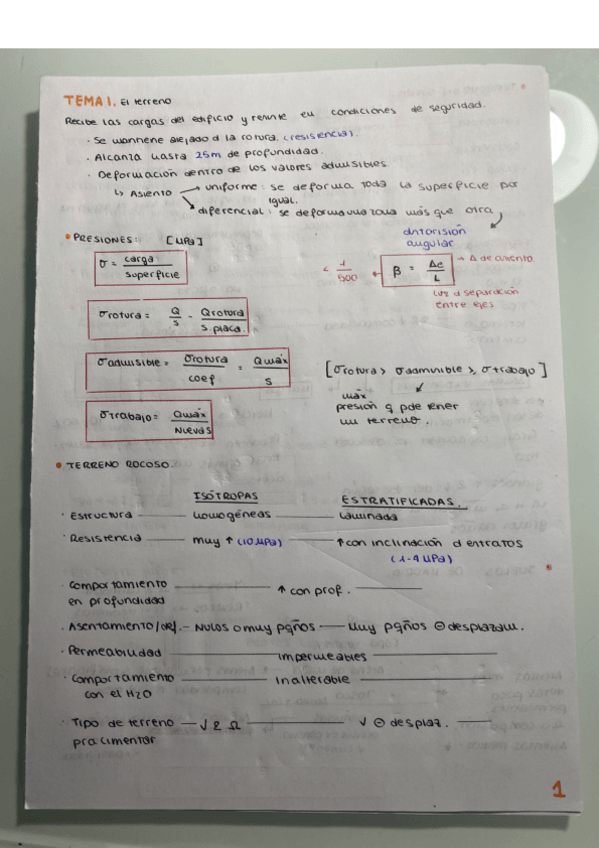 TEMA 1. El terreno
Recibe las cargas del edificio y remite en condiciones de seguridad.
· Se mantiene alejado d la rotura. (resistencia).
· Alcanza hasta 25m de profundidad.
· Deformación dentro de los valores admisibles.
↳ Asiento → uniforme: se deforma toda la superficie por igual.
↘ diferencial: se deforma una zona más que otra
distorsión angular
• PRESIONES: [MPa]
σ = carga / superficie
< 1/500 ← β = Δe / L → Δ de asiento
luz d separación entre ejes
σrotura = Q/S - Qrotura / S.placa
σadmisible = σrotura / coef = Qmáx / S
[σrotura > σadmisible > σtrabajo]
↓
máx presión q pde tener un terreno.
σtrabajo = Qmáx / Nuevas
• TERRENO ROCOSO.
ISÓTROPAS ESTRATIFICADAS.
· Estructura — homogéneas — laminada
· Resistencia — muy ↑ (10 MPa) — ↑ con inclinación d entratos (1-4 MPa)
· Comportamiento en profundidad — ↑ con prof. —
· Asentamiento/def. - Nulos o muy pqños — Muy pqños ⊖ desplazam.
· Permeabilidad — impermeables —
· Comportamiento con el H2O — Inalterable —
· Tipo de terreno pra cimentar — √ — √ ⊖ desplaz. —
1